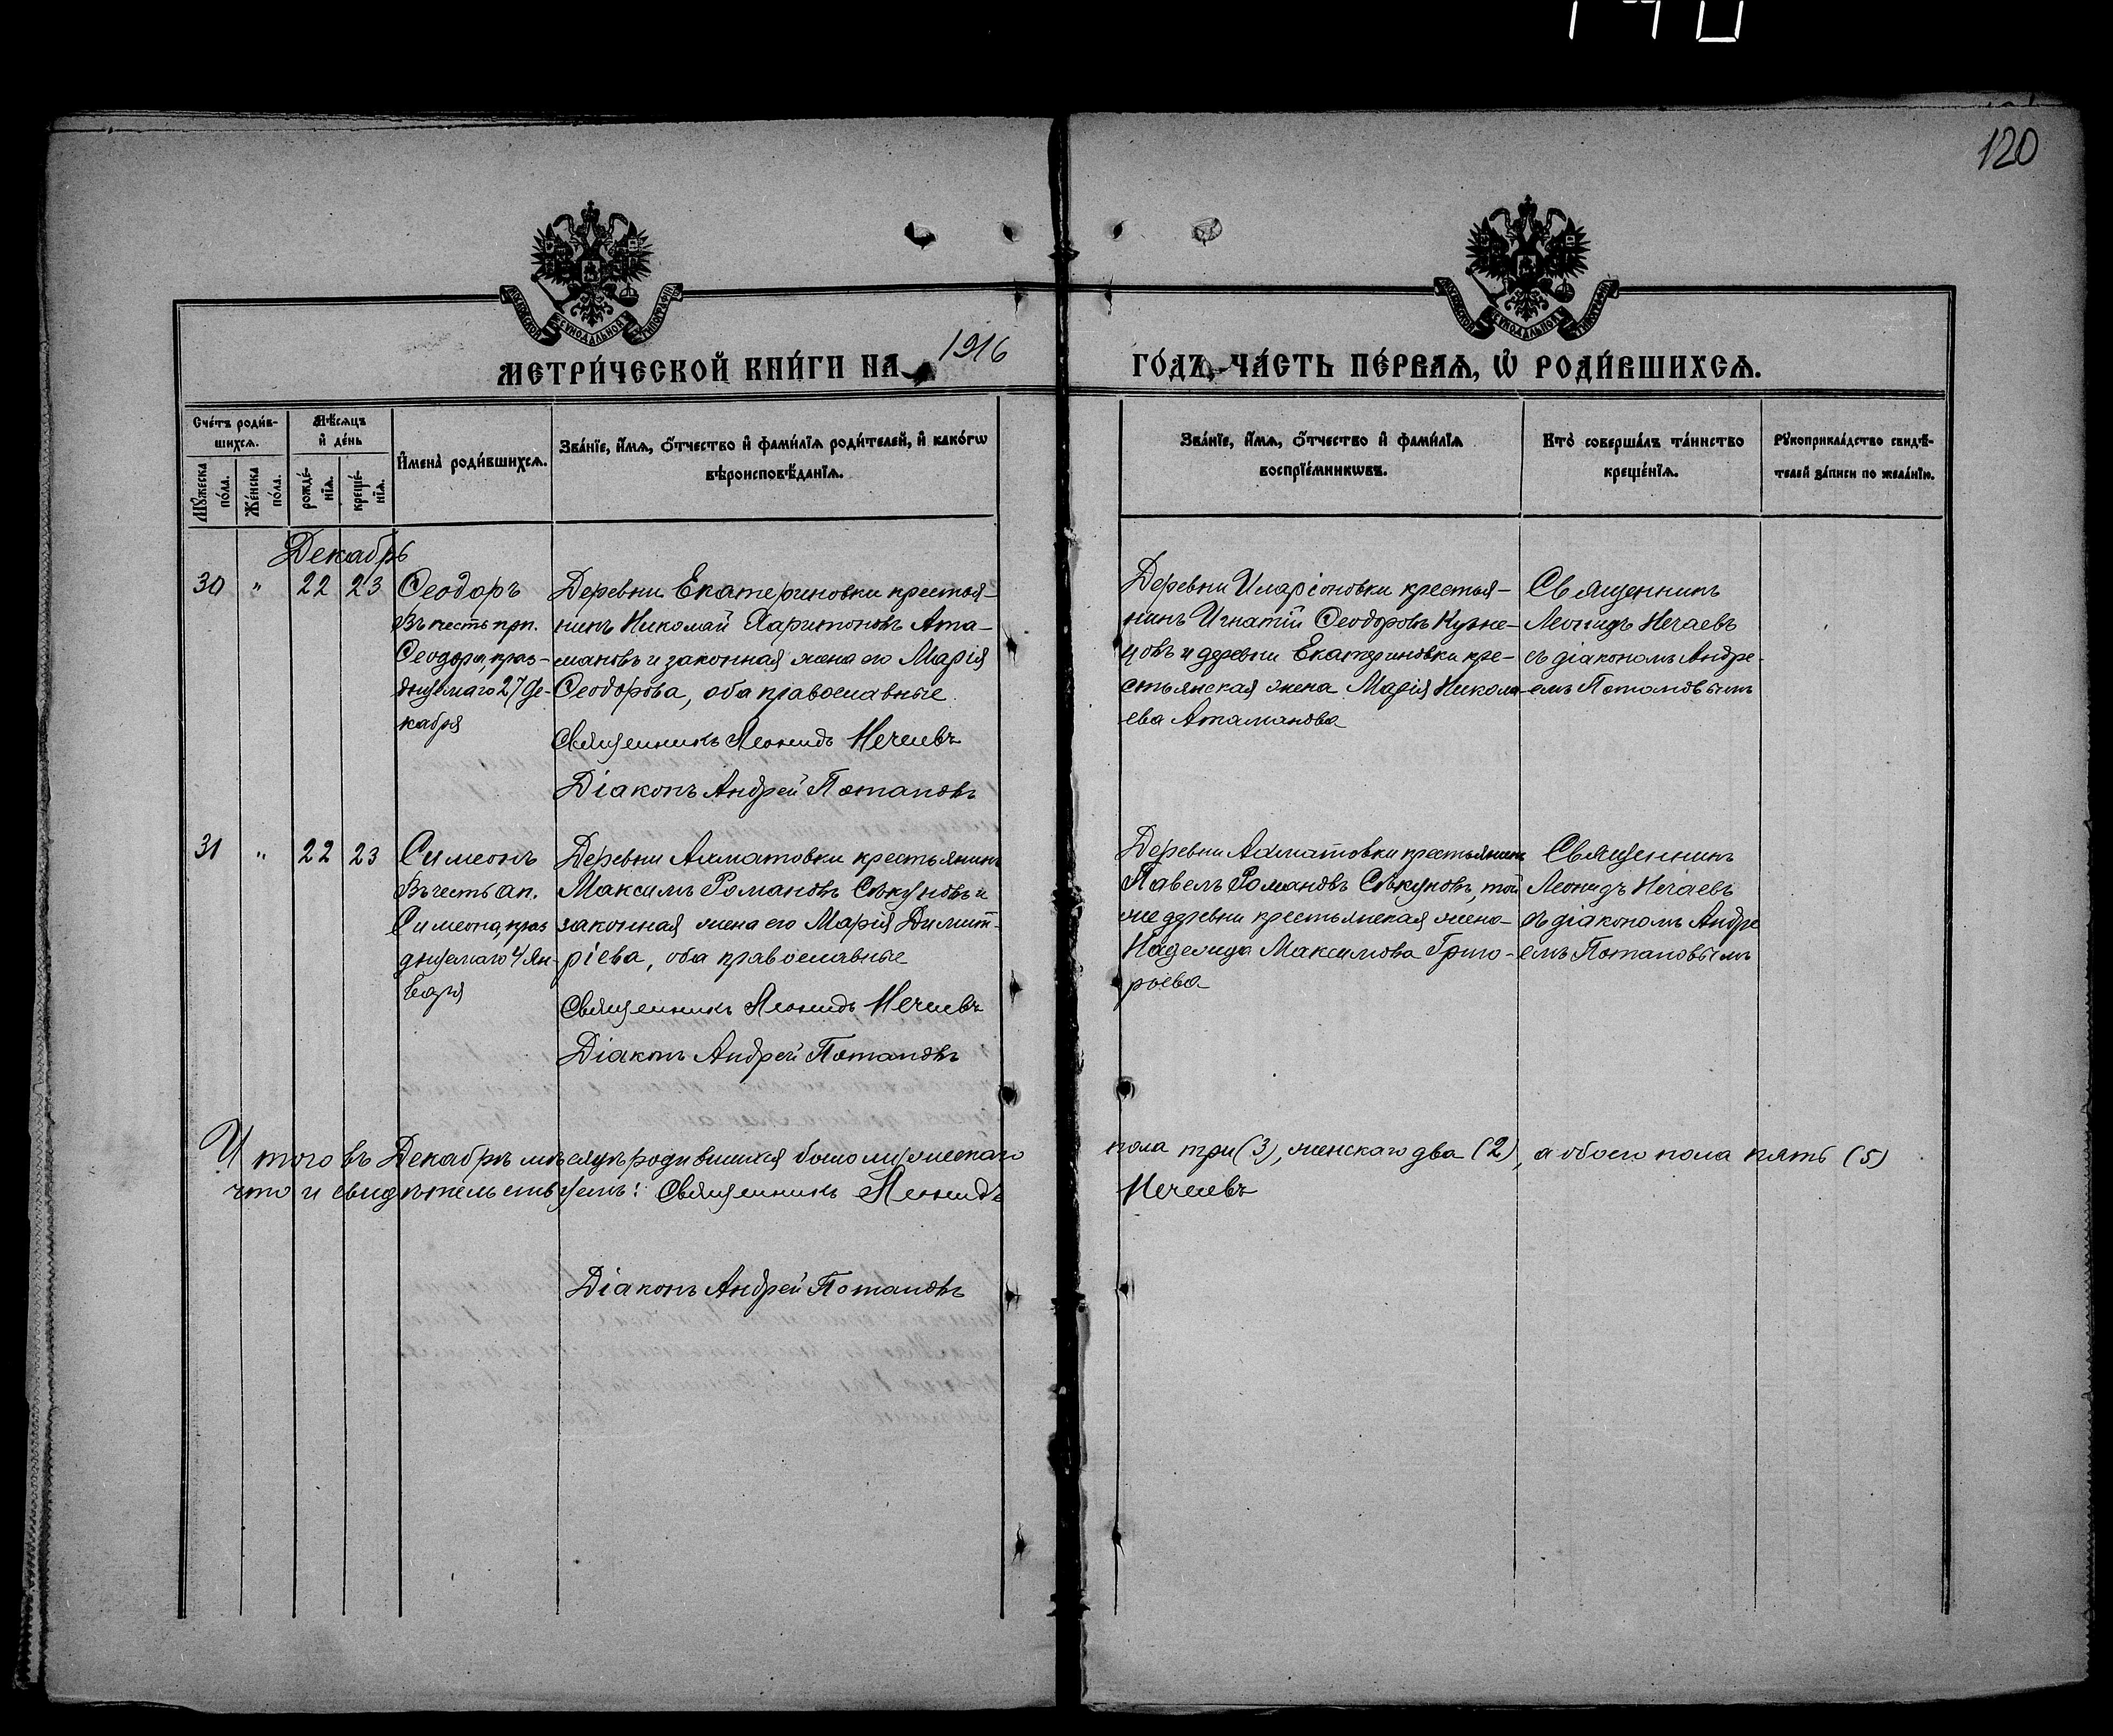 120
МЕТРИ́ЧЕСКОЙ КНИ́ГИ НА 1916 ГО́ДЪ, ЧА́СТЬ ПЕ́РВАѦ, Ѡ҆ РОДИ́ВШИХСѦ.
Сче́тъ роди́в-
шихсѧ.
Мꙋ́жеска по́ла.
Же́нска по́ла.
Мѣ́сѧцъ
и҆ де́нь
рожде́-
нїѧ.
креще́-
нїѧ.
И҆мена̀ роди́вшихсѧ.
Зва́нїе, и҆́мѧ, ѻ҆́тчество и҆ фами́лїѧ роди́телей, и҆ како́гѡ
вѣроисповѣ́данїѧ.
Зва́нїе, и҆́мѧ, ѻ҆́тчество и҆ фами́лїѧ
воспрїе́мникѡвъ.
Кто̀ соверша́лъ та́инство
креще́нїѧ.
Рꙋкоприкла́дство свидѣ́-
телей за́писи по жела́нїю.
Декабрь
30 " 22 23
Ѳеодоръ
Въ честь прп.
Ѳеодора, праз-
днуемаго 27 Де-
кабря
Деревни Екатериновки крестья-
нинъ Николай Харитоновъ Ата-
мановъ и законная жена его Марія
Ѳеодорова, оба православные
Священникъ Леонидъ Нечаевъ
Діаконъ Андрей Потаповъ
Деревни Иларіоновки крестья-
нинъ Игнатій Ѳеодоровъ Кузне-
цовъ и деревни Екатериновки кре-
стьянская жена Марія Никола-
ева Атаманова
Священникъ
Леонидъ Нечаевъ
съ діакономъ Андре-
емъ Потаповымъ
31 " 22 23
Симеонъ
Въ честь ап.
Симеона, праз
днуемаго 4 Ян-
варя
Деревни Ахматовки крестьянинъ
Максимъ Романовъ Сѣкуновъ и
законная жена его Марія Димит-
ріева, оба православные
Священникъ Леонидъ Нечаевъ
Діаконъ Андрей Потаповъ
Деревни Ахматовки крестьянинъ
Павелъ Романовъ Сѣкуновъ, той
же деревни крестьянская жена
Надежда Максимова Григо-
рьева
Священникъ
Леонидъ Нечаевъ
съ діакономъ Андре
емъ Потаповымъ
Итого въ Декабрѣ мѣсяцѣ родившихся было мужескаго пола три (3), женскаго два (2), а обоего пола пять (5)
что и свидѣтельствуемъ: Священникъ Леонидъ Нечаевъ
Діаконъ Андрей Потаповъ